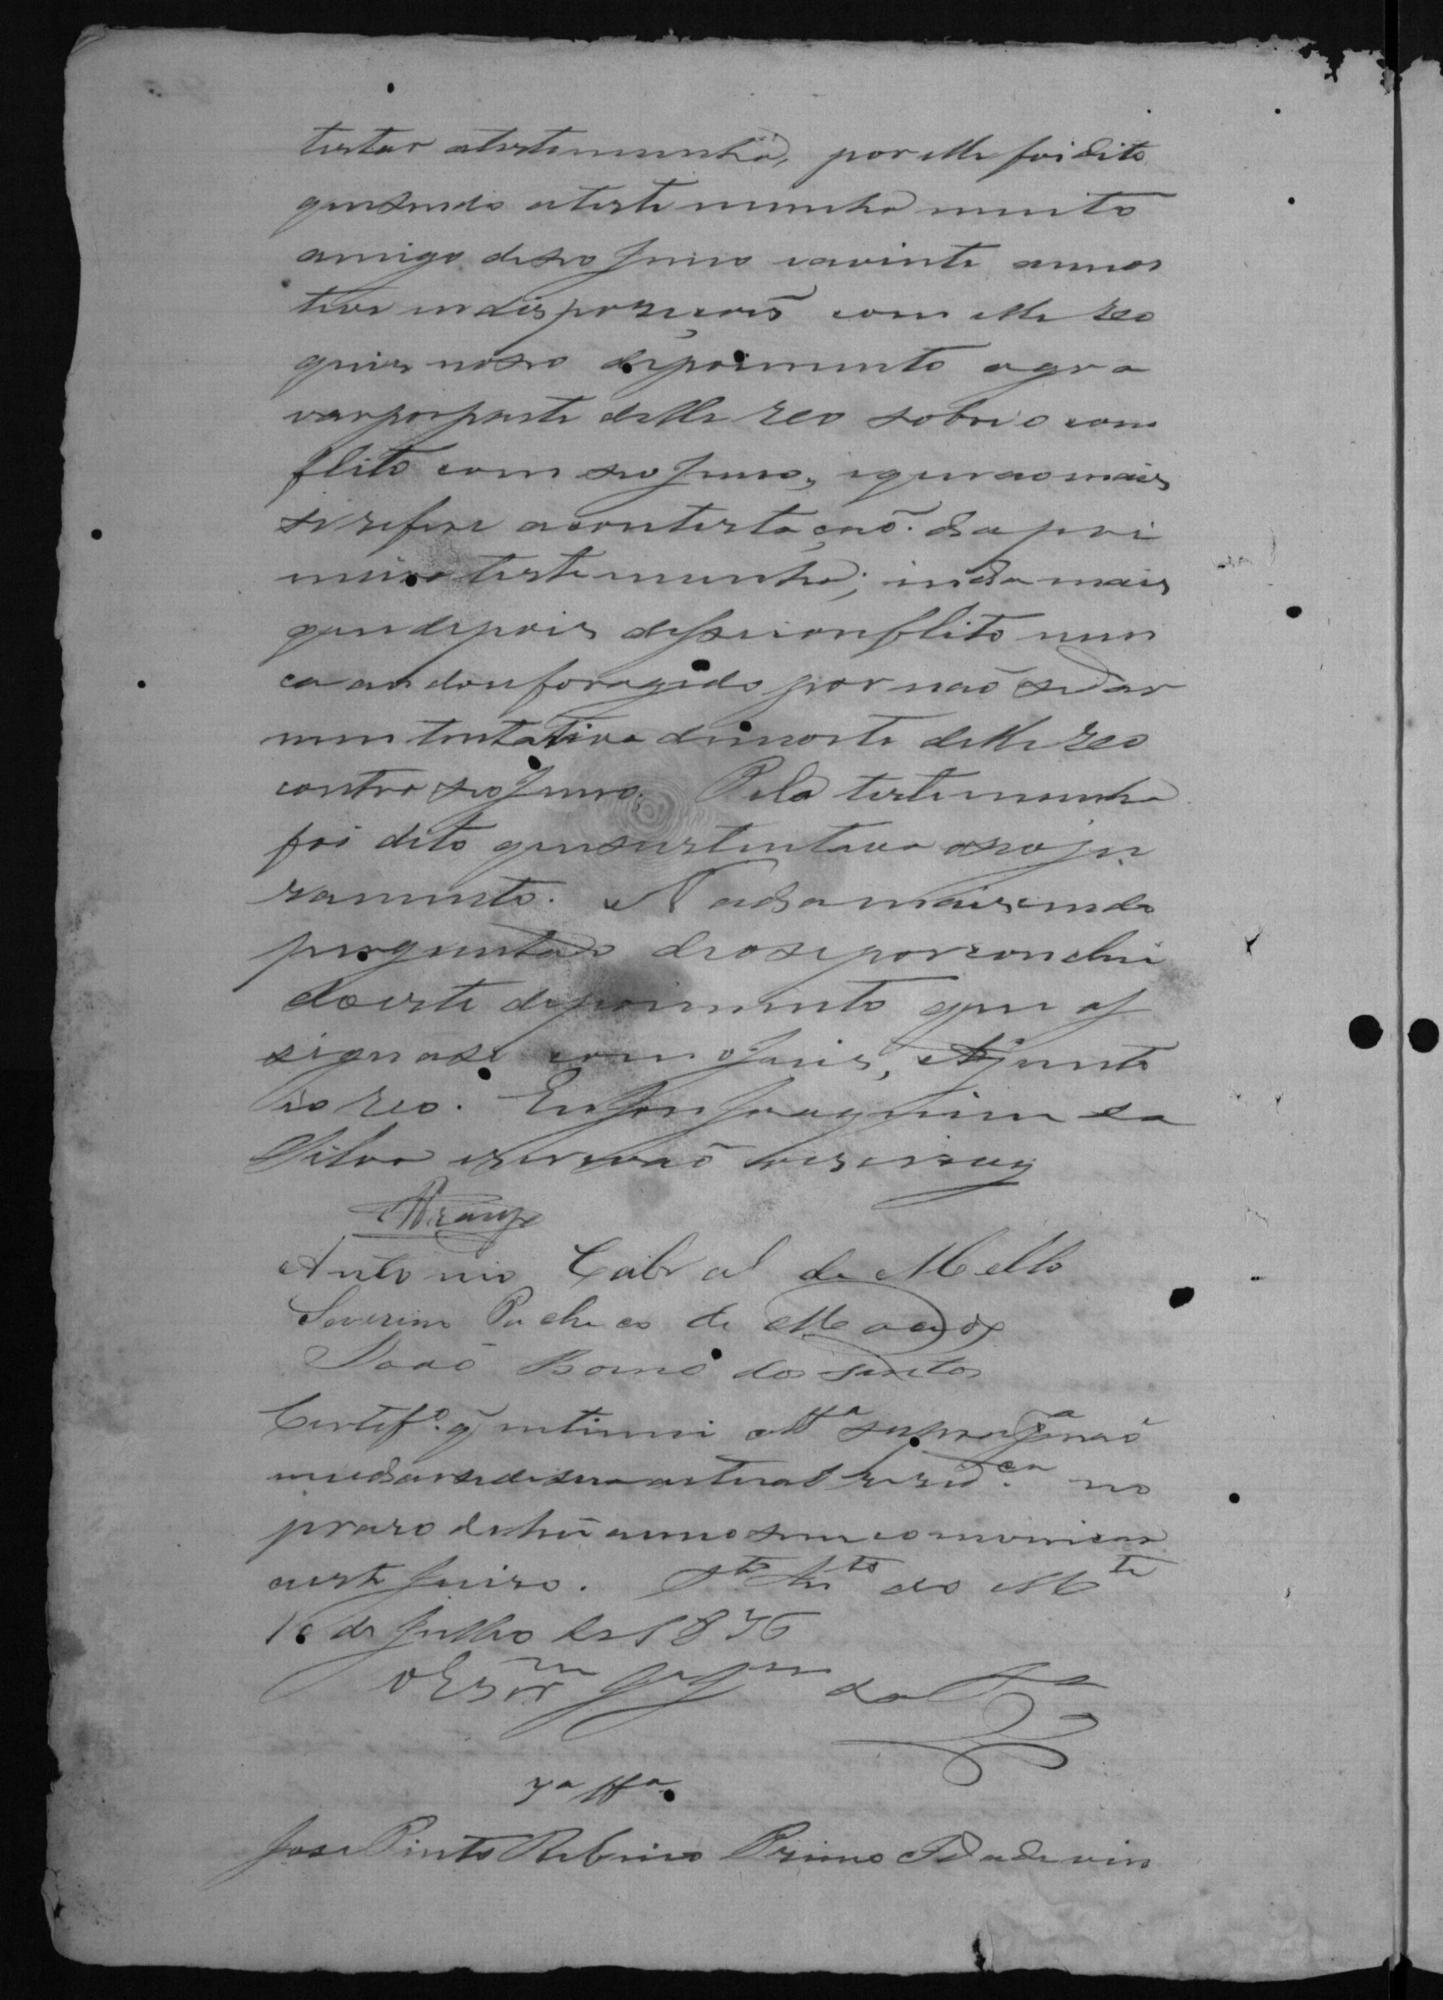 testar a testemunha, por elle foi dito
que sendo a testemunha muito
amigo de seo Juino e a vinte annos
teve indisposiçois com elle reo
quis no seo depoimento agra
var por parte delle reo sobre o con
flito com seo Juino, e que no mais
se refere a contestação da pri
meira testemunha; inda mais
que depois desse conflito nun
ca andou foragido por não se dar
uma tentativa de morte delle reo
contra seo Juino. Pela testemunha
foi dito que sustentava o seo ju
ramento. Nada mais sendo
perguntado deose por conclui
do este depoimento que as
signase com o Juis, Ajunta
e o reo. Eu Jose Joaquim da
Silva escrivão o escrevy
Araujo
Antonio Cabral de Mello
Severino Pacheco de Macedo
João Bomé dos Santos
Certifº. q̃ intimei a ttª supra pª não
mudarse de sua actual resid.cª no
praso de hũ anno sem comonicar
a este Juiso. Sto Anto do Mte
10 de Julho de 1876
O Esc.m J. Jm da Sª
7ª ttª.
Jose Pinto Ribeiro Primo Idade vin